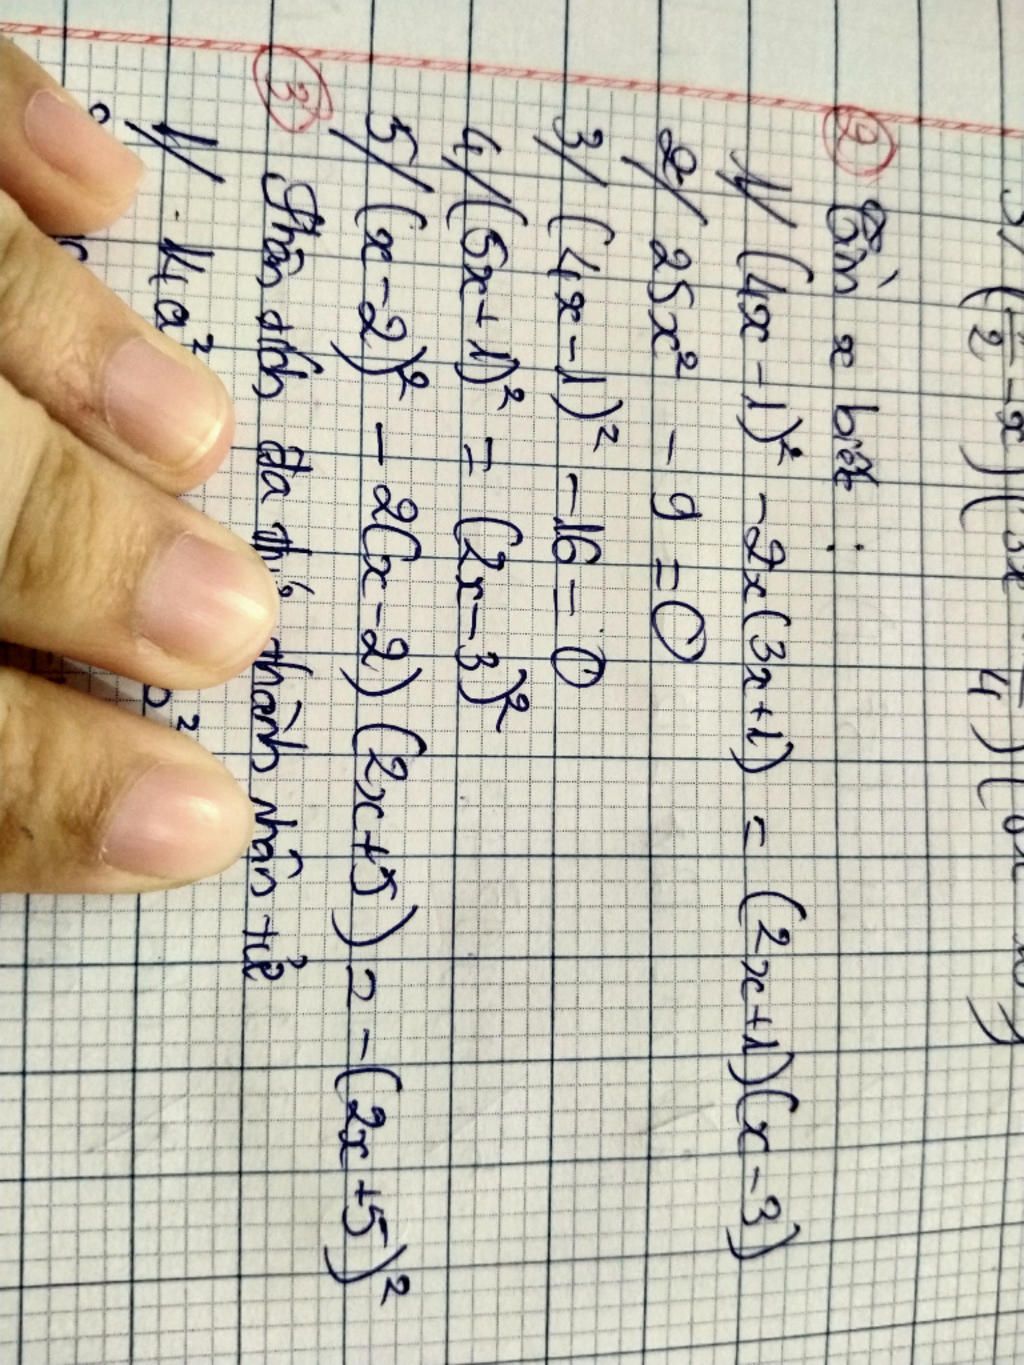 3/ (/2 - x)(3x 4)(
② Tìm x biết :
1/ (4x - 1)² - 2x(3x+1) = (2x+1)(x-3)
2/ 25x² - 9 = 0
3/ (4x - 1)² - 16 = 0
4/ (5x+1)² = (2x-3)²
5/ (x-2)² - 2(x-2)(2x+5) = -(2x+5)²
③ Phân tích đa thức thành nhân tử
1/ 4a²